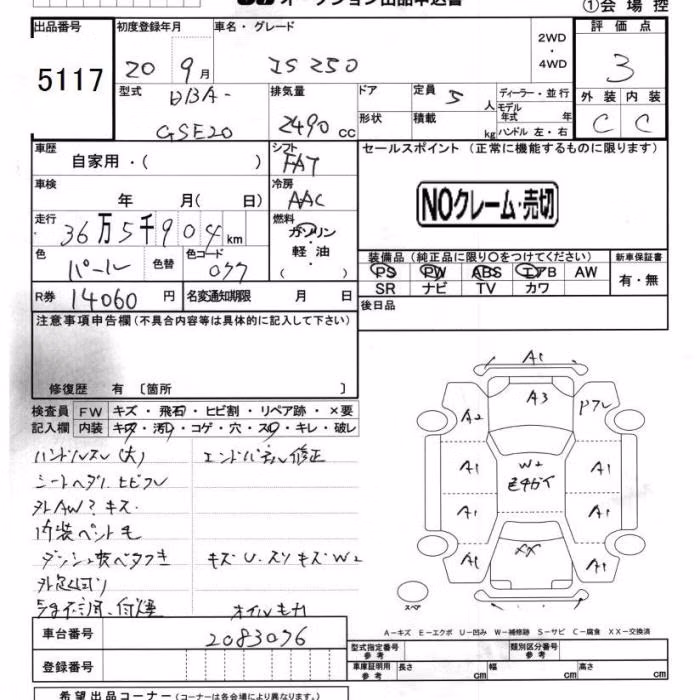 オークション出品申込書
①会場控
出品番号 初度登録年月 車名・グレード 2WD・4WD 評価点
5117 20 9月 IS250 3
型式 DBA-GSE20 排気量 2490 cc ドア 定員 5 人 ディーラー・並行 外装 内装
形状 積載 kg モデル年式 年 ハンドル 左・右 C C
車歴 自家用・( ) シフト FAT セールスポイント (正常に機能するものに限ります)
車検 年 月( 日) 冷房 AAC
NOクレーム・売切
走行 36万5千904km 燃料 ガソリン・軽油・( )
色 パール 色替 色コード 077
装備品 (純正品に限り○をつけてください) 新車保証書
PS PW ABS エアB AW 有・無
SR ナビ TV カワ
R券 14060円 名変通知期限 月 日 後日品
注意事項申告欄 (不具合内容等は具体的に記入して下さい)
修復歴 有 [箇所 ]
検査員 FW キズ・飛石・ヒビ割・リペア跡・×要
記入欄 内装 キズ・汚レ・コゲ・穴・スリ・キレ・破レ
ハンドルスレ(大) エンドパネル修正
シートヘタリ.ヒビワレ
外AW?キズ.
内装ペット毛
キズU.スリキズW2
A1
A3
A2
W2
A1 A1
A1 A1
A1 A1
XX
スペア
A-キズ E-エクボ U-凹み W-補修跡 S-サビ C-腐食 XX-交換済
車台番号 2083076 型式指定番号 参考 類別区分番号 参考
登録番号 車庫証明用 参考 長さ cm 幅 cm 高さ cm
希望出品コーナー (コーナーは各会場により異なります。)